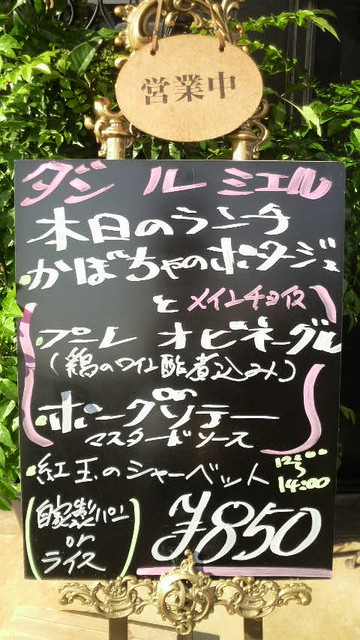 営業中
ダジルミエル
本日のランチ
・かぼちゃのポタージュ
と メインチョイス
・プーレ オ ビネーグル
(鶏のワイン酢煮込み)
or
・ポークソテー
マスタードソース
・紅玉のシャーベット
12:00
〜
14:00
自家製パン
or
ライス
¥850